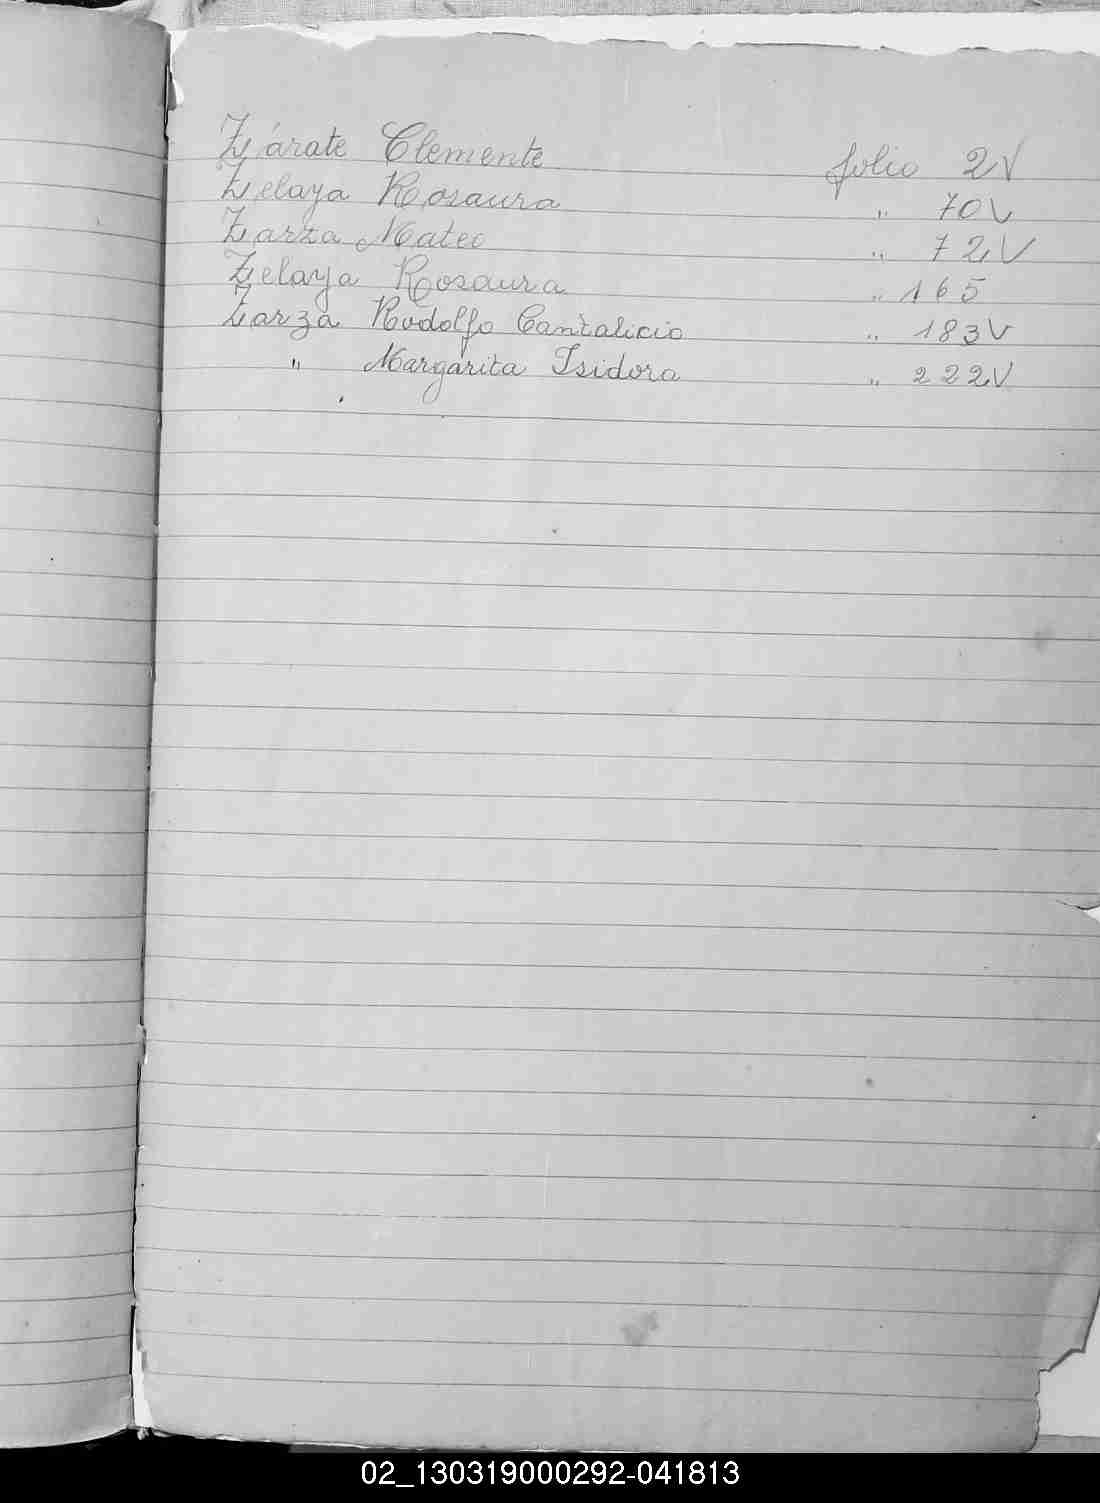 Zárate Clemente folio 2V
Zelaya Rosaura " 70V
Zarza Mateo " 72V
Zelaya Rosaura " 165
Zarza Rodolfo Cantalicio " 183V
" Margarita Isidora " 222V
02_130319000292-041813